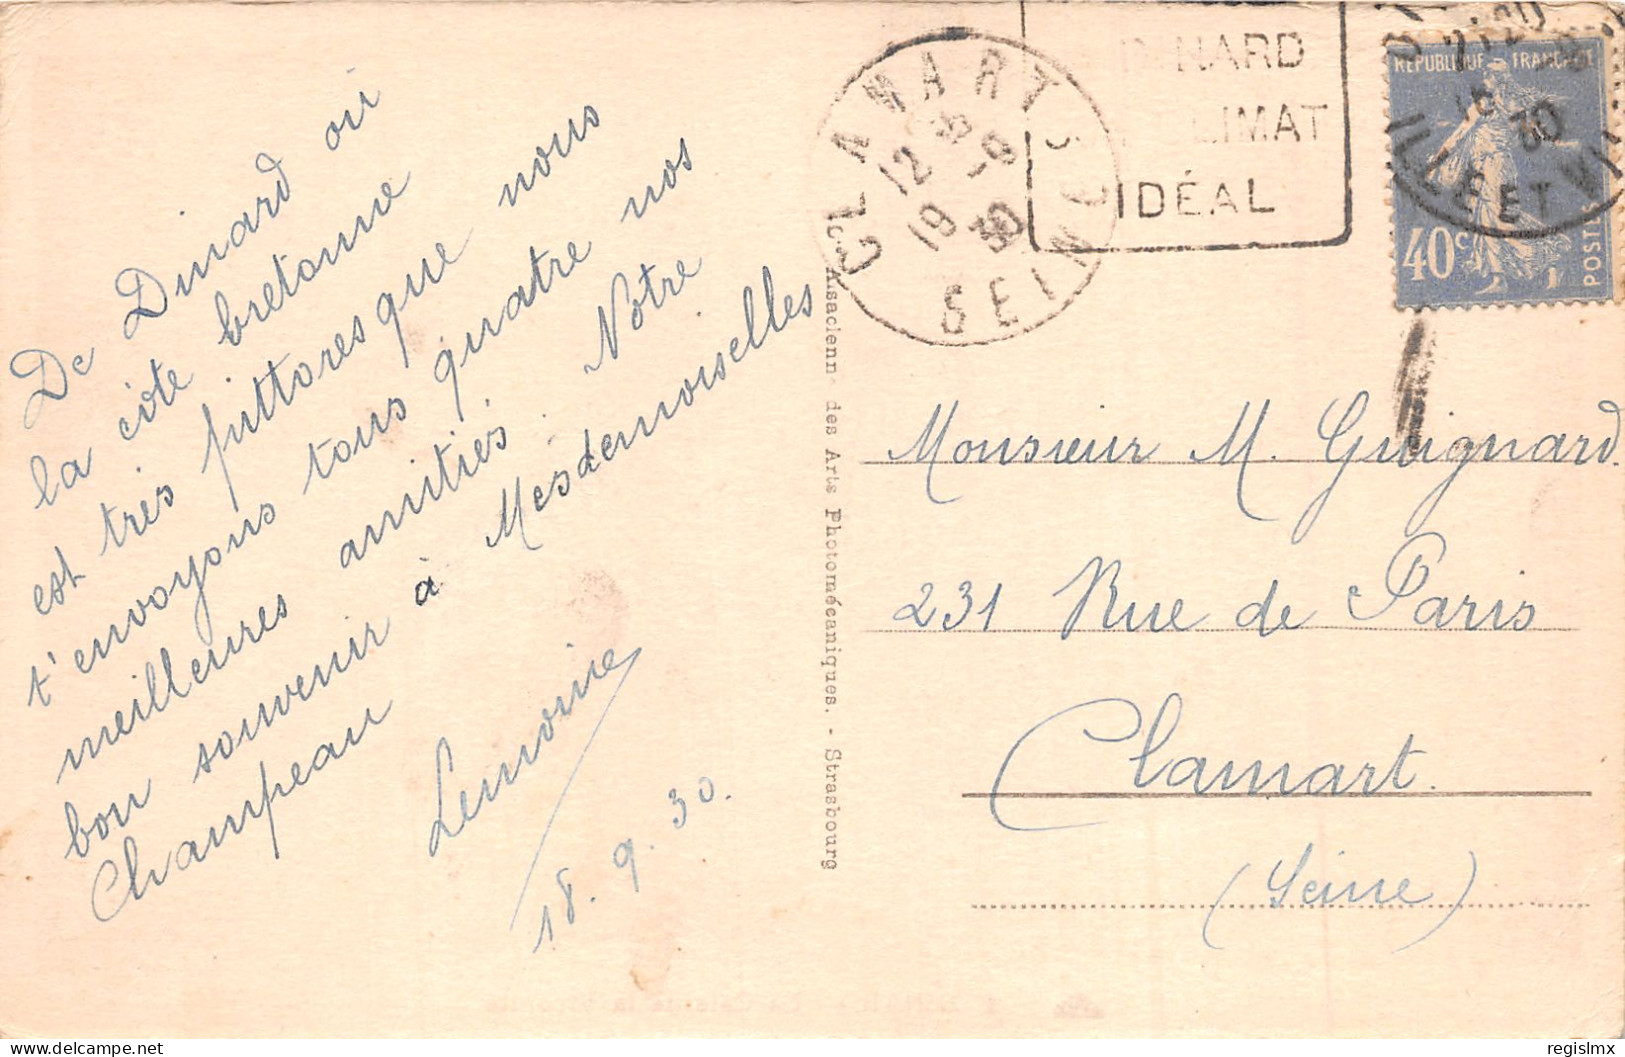 De Dinard où
la côte bretonne
est très pittoresque nous
t'envoyons tous quatre nos
meilleures amitiés. Notre
bon souvenir à Mesdemoiselles
Champeau
Lemoine
18.9.30.
Alsacienne des Arts Photomécaniques. - Strasbourg
CLAMART
SEINE
12
19 30
DINARD
CLIMAT
IDÉAL
REPUBLIQUE FRANÇAISE
40c
POSTES
30
ILLE ET VIL
Monsieur M. Guignard.
231 Rue de Paris
Clamart.
(Seine)
delcampe.net
regislmx